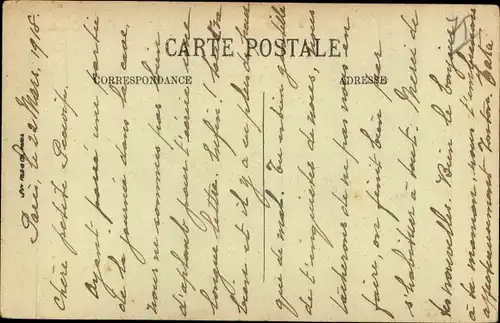 CARTE POSTALE
CORRESPONDANCE
ADRESSE
Paris, le 22 Mars, 1918
Chère petite
Ayant passé une partie
de la journée dans la cave,
nous ne sommes pas bien
d'aplomb pour t'écrire une
longue lettre. Enfin!
et il y a eu plus de peur
que de mal. Tu es bien gentille
de t'inquiéter de nous, nous
tâcherons de ne pas nous en
faire, on finit bien par
s'habituer à tout. Merci de
tes nouvelles. Bien le bonjour
à ta maman, nous t'embrassons
affectueusement